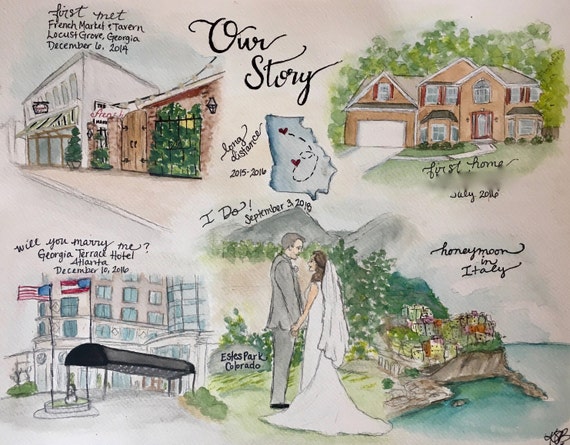 first met
French Market & Tavern
Locust Grove, Georgia
December 6, 2014
Our
Story
long
distance
2015-2016
first home
July 2016
I Do! September 3, 2018
will you marry me?
Georgia Terrace Hotel
Atlanta
December 10, 2016
honeymoon
in
Italy
Estes Park
Colorado